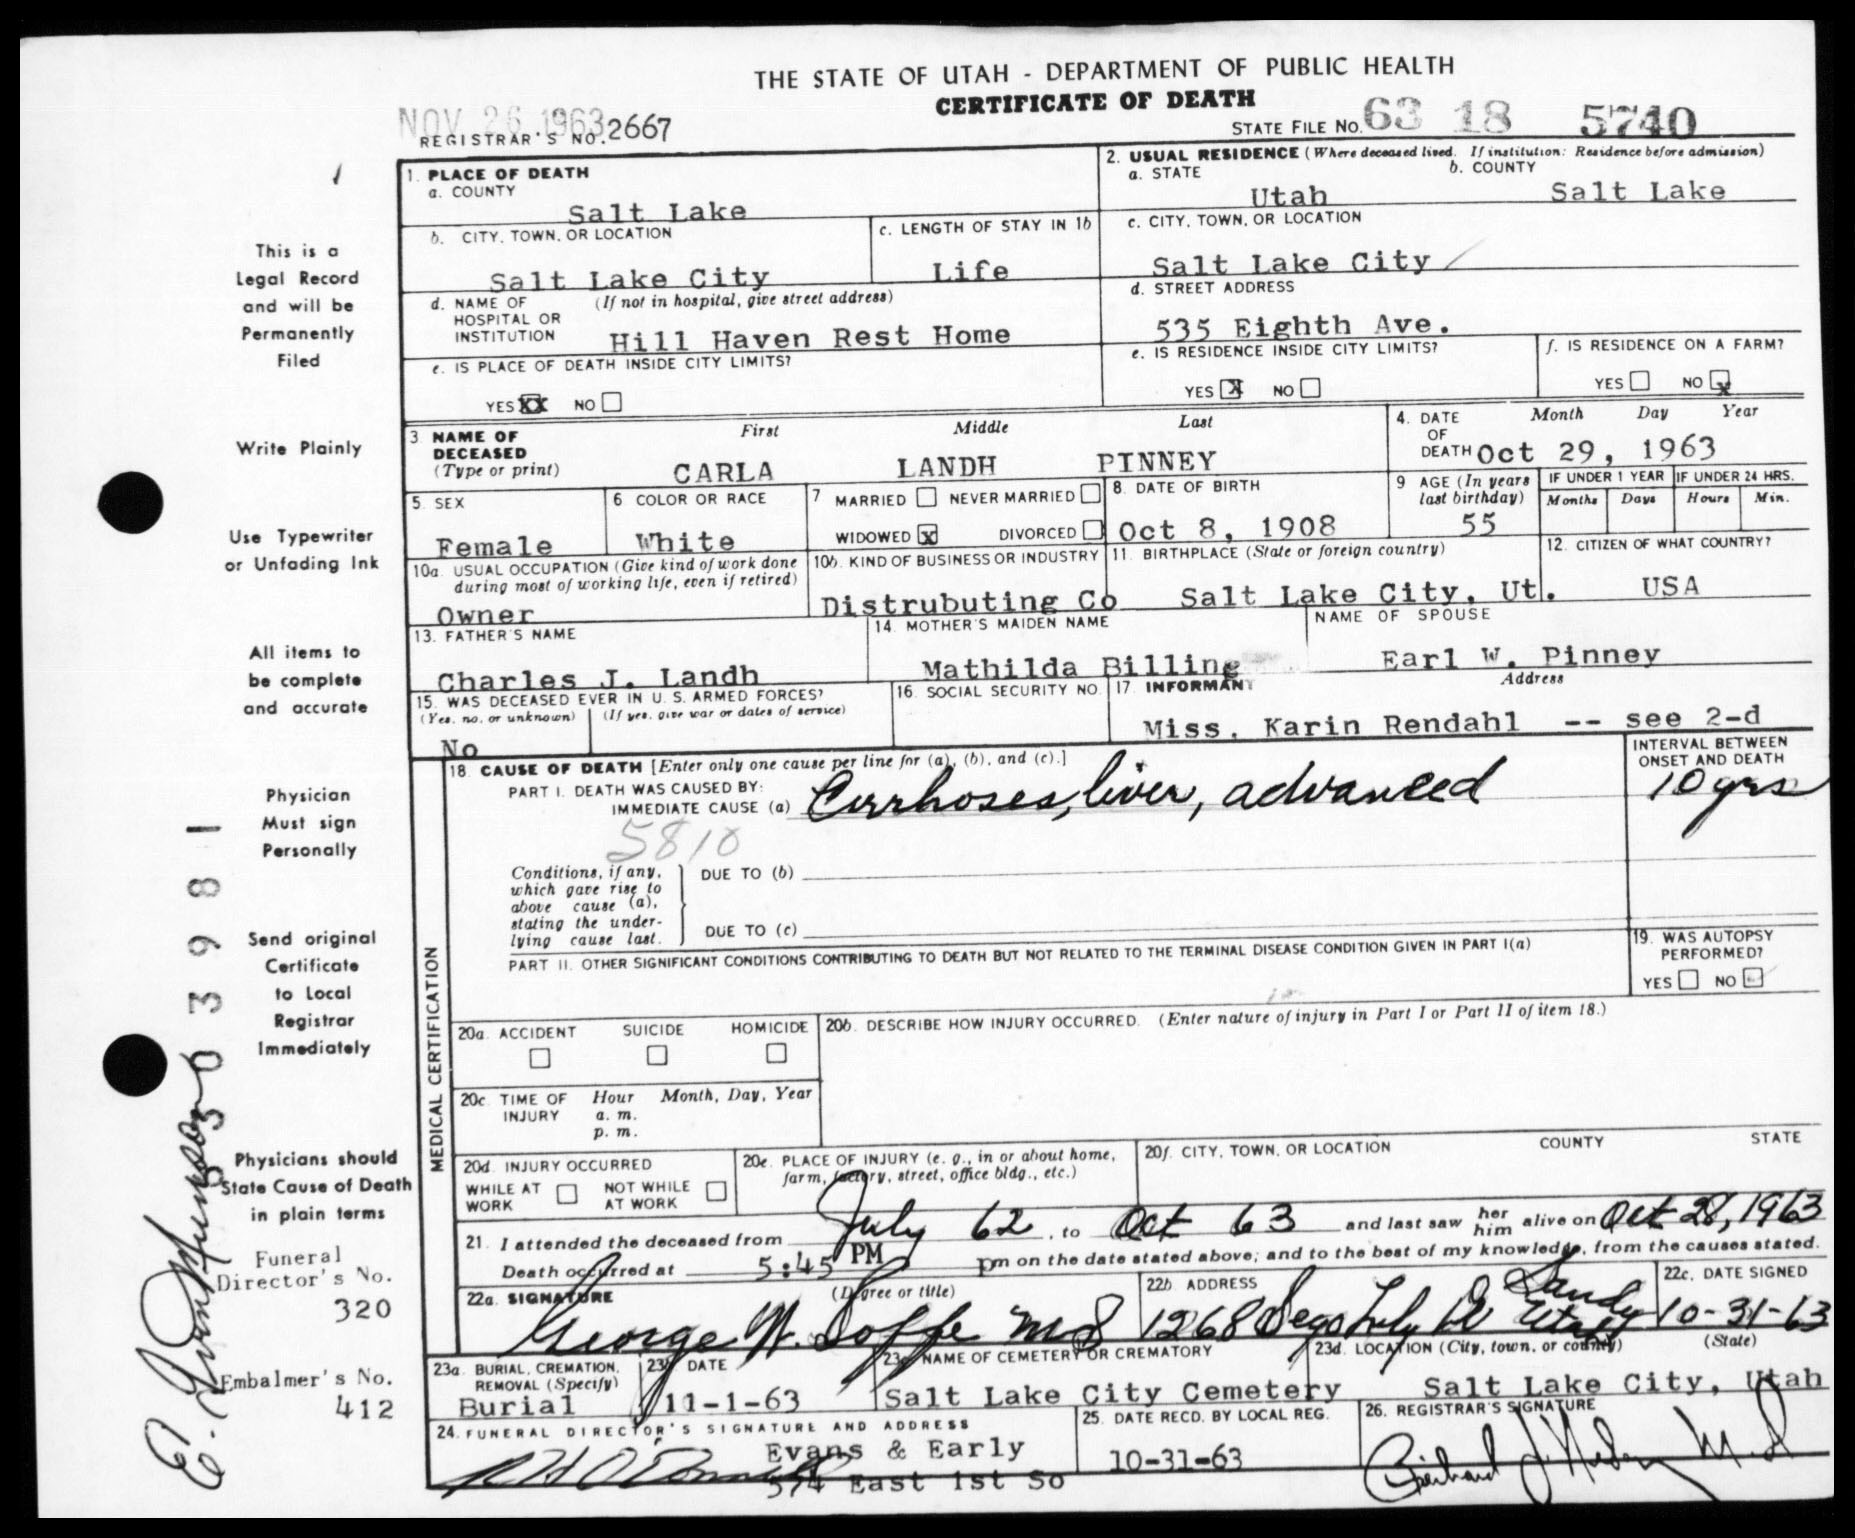 THE STATE OF UTAH - DEPARTMENT OF PUBLIC HEALTH
CERTIFICATE OF DEATH
NOV 26 1963
REGISTRAR'S NO. 2667
STATE FILE NO. 63 18 5740
1. PLACE OF DEATH
a. COUNTY
Salt Lake
2. USUAL RESIDENCE (Where deceased lived. If institution: Residence before admission)
a. STATE b. COUNTY
Utah Salt Lake
b. CITY, TOWN, OR LOCATION
Salt Lake City
c. LENGTH OF STAY IN 1b
Life
c. CITY, TOWN, OR LOCATION
Salt Lake City
d. NAME OF HOSPITAL OR INSTITUTION (If not in hospital, give street address)
Hill Haven Rest Home
d. STREET ADDRESS
535 Eighth Ave.
e. IS PLACE OF DEATH INSIDE CITY LIMITS?
YES XX NO
e. IS RESIDENCE INSIDE CITY LIMITS?
YES X NO
f. IS RESIDENCE ON A FARM?
YES NO X
3. NAME OF DECEASED (Type or print)
First Middle Last
CARLA LANDH PINNEY
4. DATE OF DEATH Month Day Year
Oct 29, 1963
5. SEX
Female
6. COLOR OR RACE
White
7. MARRIED NEVER MARRIED
WIDOWED X DIVORCED
8. DATE OF BIRTH
Oct 8, 1908
9. AGE (In years last birthday)
55
IF UNDER 1 YEAR IF UNDER 24 HRS.
Months Days Hours Min.
10a. USUAL OCCUPATION (Give kind of work done during most of working life, even if retired)
Owner
10b. KIND OF BUSINESS OR INDUSTRY
Distrubuting Co
11. BIRTHPLACE (State or foreign country)
Salt Lake City, Ut.
12. CITIZEN OF WHAT COUNTRY?
USA
13. FATHER'S NAME
Charles J. Landh
14. MOTHER'S MAIDEN NAME
Mathilda Billing
NAME OF SPOUSE
Earl W. Pinney
15. WAS DECEASED EVER IN U. S. ARMED FORCES?
(Yes, no, or unknown) (If yes, give war or dates of service)
No
16. SOCIAL SECURITY NO.
17. INFORMANT Address
Miss. Karin Rendahl -- see 2-d
MEDICAL CERTIFICATION
18. CAUSE OF DEATH [Enter only one cause per line for (a), (b), and (c).]
PART I. DEATH WAS CAUSED BY:
IMMEDIATE CAUSE (a) Cirrhoses, liver, advanced
5810
INTERVAL BETWEEN ONSET AND DEATH
10 yrs
Conditions, if any, which gave rise to above cause (a), stating the underlying cause last.
DUE TO (b)
DUE TO (c)
PART II. OTHER SIGNIFICANT CONDITIONS CONTRIBUTING TO DEATH BUT NOT RELATED TO THE TERMINAL DISEASE CONDITION GIVEN IN PART I(a)
19. WAS AUTOPSY PERFORMED?
YES NO
20a. ACCIDENT SUICIDE HOMICIDE
20b. DESCRIBE HOW INJURY OCCURRED. (Enter nature of injury in Part I or Part II of item 18.)
20c. TIME OF INJURY Hour Month, Day, Year
a. m.
p. m.
20d. INJURY OCCURRED
WHILE AT WORK NOT WHILE AT WORK
20e. PLACE OF INJURY (e. g., in or about home, farm, factory, street, office bldg., etc.)
20f. CITY, TOWN, OR LOCATION COUNTY STATE
21. I attended the deceased from July 62, to Oct 63 and last saw her him alive on Oct 28, 1963
Death occurred at 5:45 PM pm on the date stated above; and to the best of my knowledge, from the causes stated.
22a. SIGNATURE (Degree or title)
George W. Soffe MD
22b. ADDRESS
1268 Sego Lily Dr Sandy Utah
22c. DATE SIGNED
10-31-63
23a. BURIAL, CREMATION, REMOVAL (Specify)
Burial
23b. DATE
11-1-63
23c. NAME OF CEMETERY OR CREMATORY
Salt Lake City Cemetery
23d. LOCATION (City, town, or county) (State)
Salt Lake City, Utah
24. FUNERAL DIRECTOR'S SIGNATURE AND ADDRESS
Evans & Early
574 East 1st So
25. DATE RECD. BY LOCAL REG.
10-31-63
26. REGISTRAR'S SIGNATURE
This is a
Legal Record
and will be
Permanently
Filed
Write Plainly
Use Typewriter
or Unfading Ink
All items to
be complete
and accurate
Physician
Must sign
Personally
Send original
Certificate
to Local
Registrar
Immediately
Physicians should
State Cause of Death
in plain terms
Funeral
Director's No.
320
Embalmer's No.
412